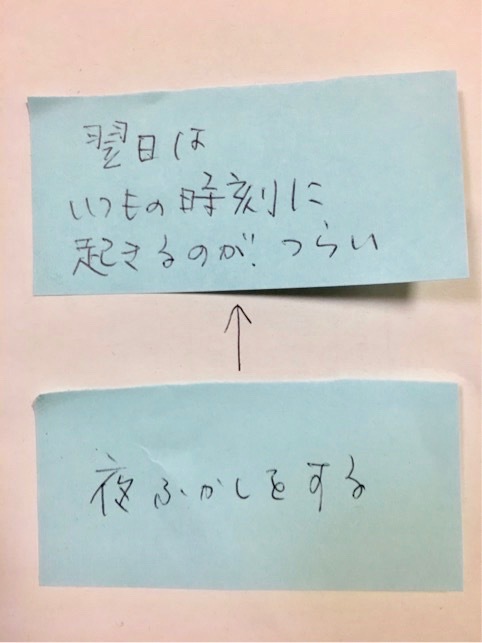 翌日は
いつもの時刻に
起きるのが つらい
夜ふかしをする